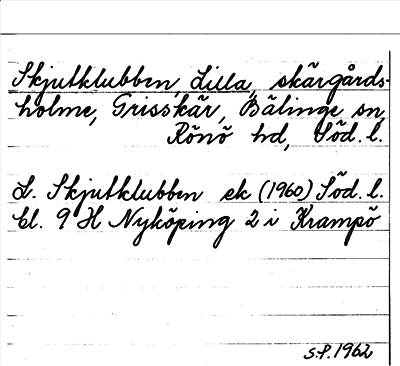 Skjutklubben, Lilla, skärgårds-
holme, Grisskär, Bälinge sn,
Rönö hd, Söd. l.
L. Skjutklubben ek (1960) Söd. l.
bl. 9 H Nyköping 2 i Krampö
S.P. 1962